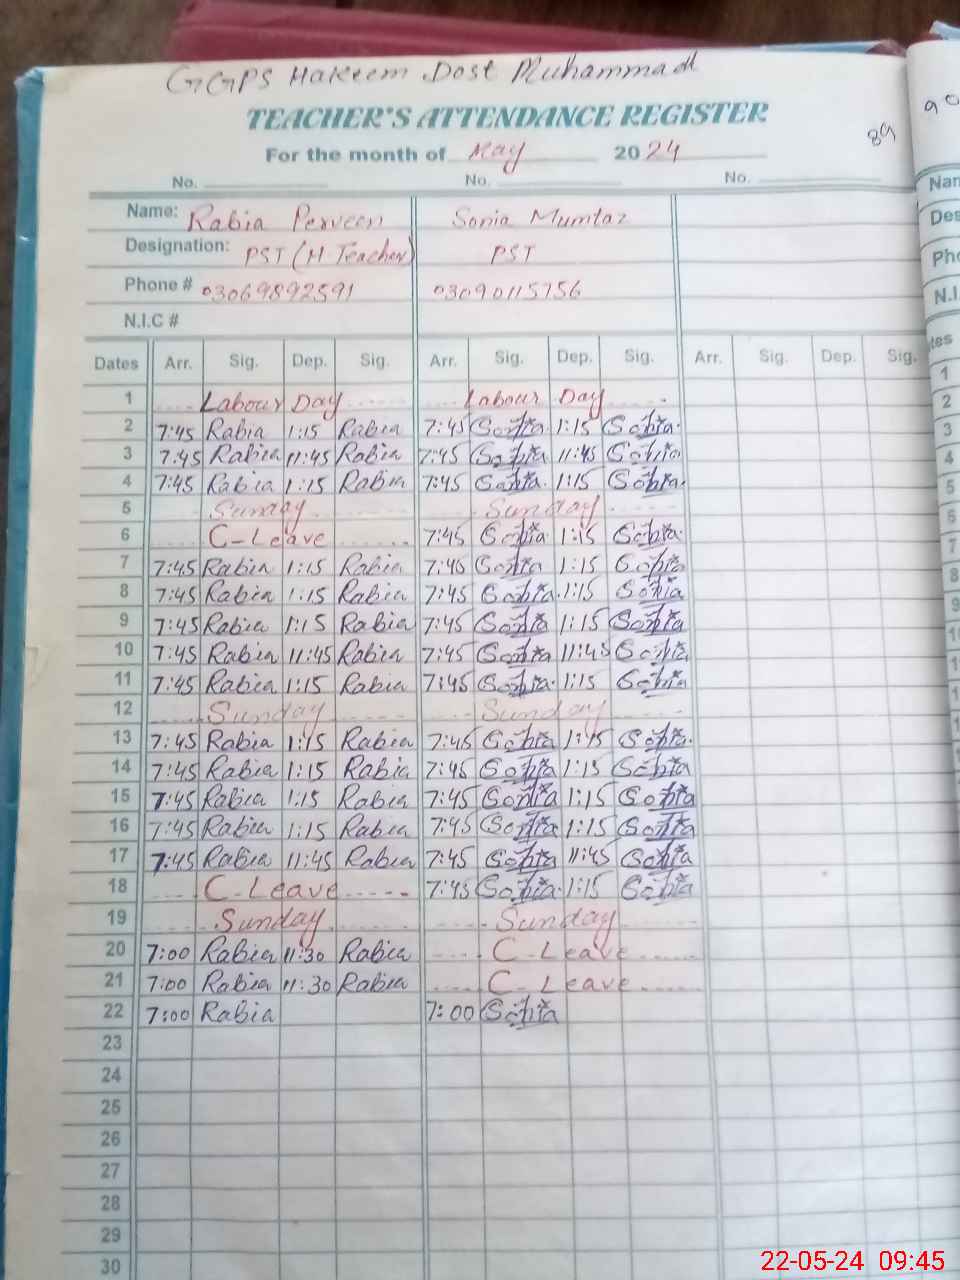 GGPS Hakeem Dost Muhammad
TEACHER'S ATTENDANCE REGISTER
89
90
For the month of May 2024
No. No. No.
Name: Rabia Perveen Sonia Mumtaz
Designation: PST (H.Teacher) PST
Phone # 03069892591 03090115756
N.I.C #
Dates Arr. Sig. Dep. Sig. Arr. Sig. Dep. Sig. Arr. Sig. Dep. Sig.
1 Labour Day Labour Day
2 7:45 Rabia 1:15 Rabia 7:45 Sonia 1:15 Sonia
3 7:45 Rabia 11:45 Rabia 7:45 Sonia 11:45 Sonia
4 7:45 Rabia 1:15 Rabia 7:45 Sonia 1:15 Sonia
5 Sunday Sunday
6 C-Leave 7:45 Sonia 1:15 Sonia
7 7:45 Rabia 1:15 Rabia 7:45 Sonia 1:15 Sonia
8 7:45 Rabia 1:15 Rabia 7:45 Sonia 1:15 Sonia
9 7:45 Rabia 1:15 Rabia 7:45 Sonia 1:15 Sonia
10 7:45 Rabia 11:45 Rabia 7:45 Sonia 11:45 Sonia
11 7:45 Rabia 1:15 Rabia 7:45 Sonia 1:15 Sonia
12 Sunday Sunday
13 7:45 Rabia 1:15 Rabia 7:45 Sonia 1:15 Sonia
14 7:45 Rabia 1:15 Rabia 7:45 Sonia 1:15 Sonia
15 7:45 Rabia 1:15 Rabia 7:45 Sonia 1:15 Sonia
16 7:45 Rabia 1:15 Rabia 7:45 Sonia 1:15 Sonia
17 7:45 Rabia 11:45 Rabia 7:45 Sonia 11:45 Sonia
18 C-Leave 7:45 Sonia 1:15 Sonia
19 Sunday Sunday
20 7:00 Rabia 11:30 Rabia C-Leave
21 7:00 Rabia 11:30 Rabia C-Leave
22 7:00 Rabia 7:00 Sonia
23
24
25
26
27
28
29
30
22-05-24 09:45